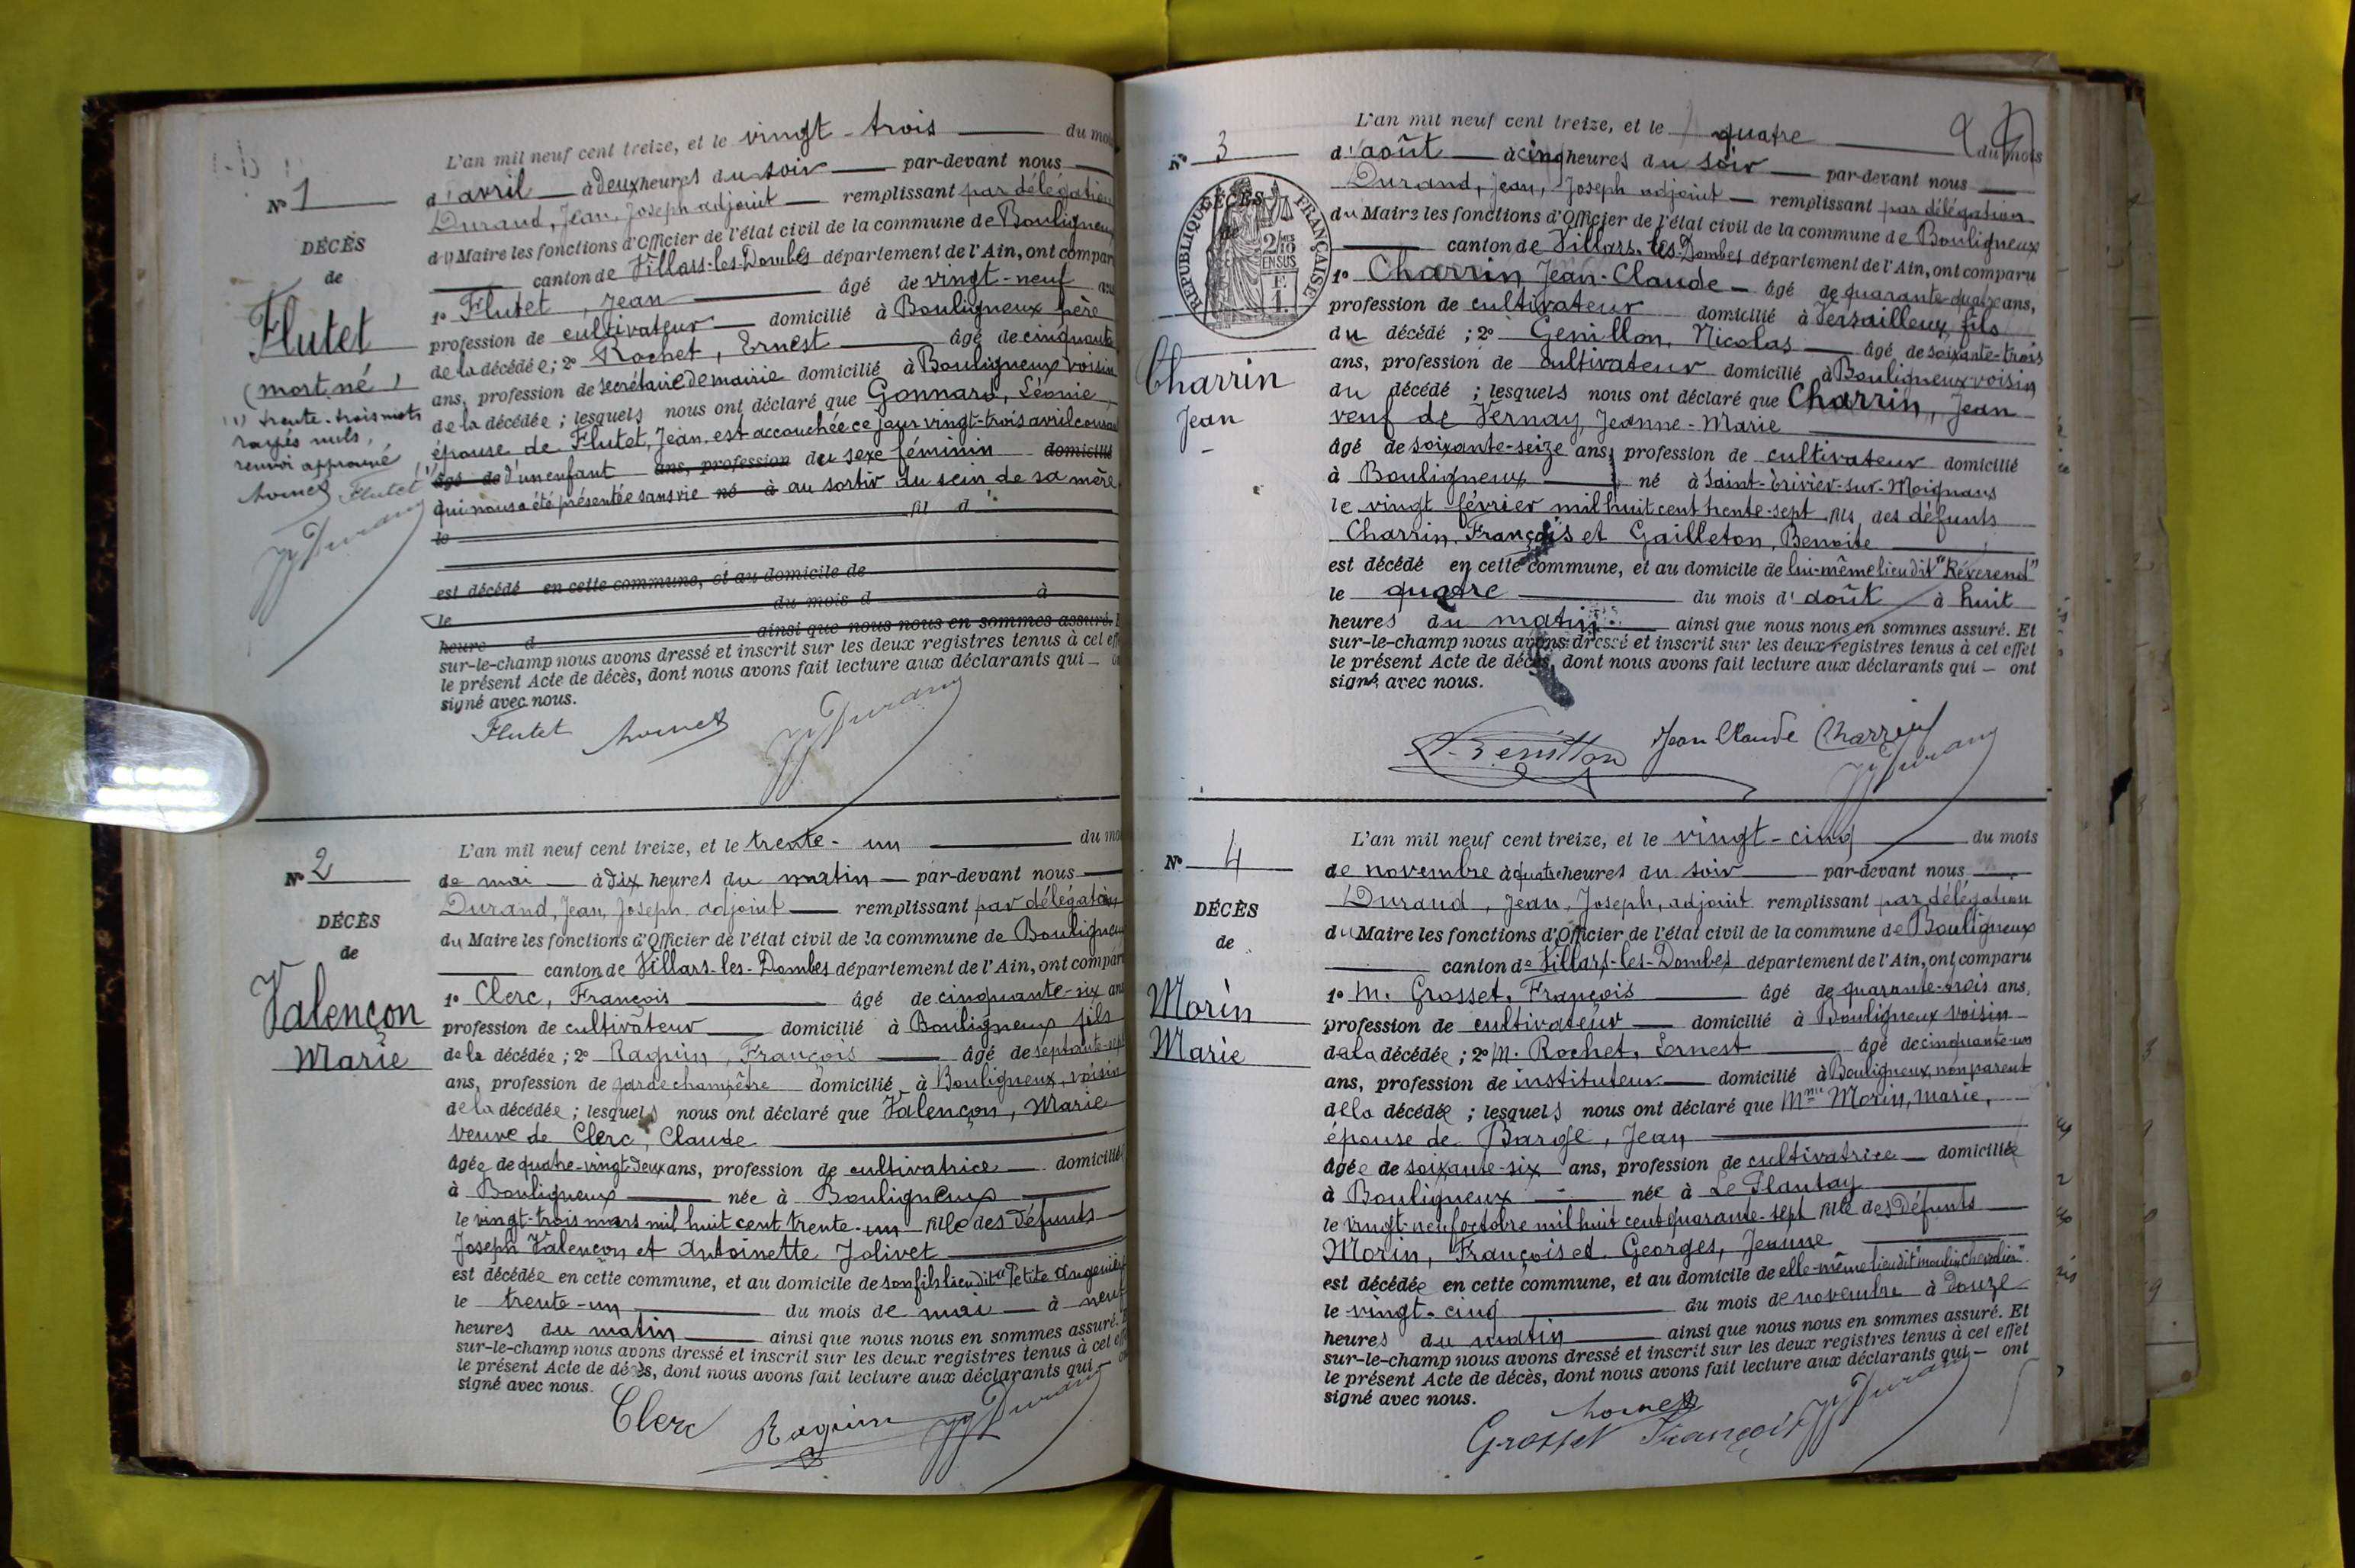 L'an mil neuf cent treize, et le vingt-trois du mois
N° 1
d'avril à deux heures du soir par-devant nous
Durand, Jean, Joseph adjoint remplissant par délégation
du Maire les fonctions d'Officier de l'état civil de la commune de Bouligneux
DÉCÈS
de
Flutet
(mort-né)
(1) trente-trois mots
rayés nuls,
renvoi approuvé
Flutet
JJ Durand
canton de Villars-les-Dombes département de l'Ain, ont comparu
1° Flutet, Jean âgé de vingt-neuf ans
profession de cultivateur domicilié à Bouligneux père
de la décédée ; 2° Rochet, Ernest âgé de cinquante
ans, profession de secrétaire de mairie domicilié à Bouligneux voisin
de la décédée ; lesquels nous ont déclaré que Gonnard, Léonie,
épouse de Flutet, Jean, est accouchée ce jour vingt-trois avril courant
(1) âgé de d'un enfant ans, profession du sexe féminin domicilié
qui nous a été présentée sans vie né à au sortir du sein de sa mère
le fil d
est décédé en cette commune, et au domicile de
le du mois d à
heure d ainsi que nous nous en sommes assuré. Et
sur-le-champ nous avons dressé et inscrit sur les deux registres tenus à cet effet
le présent Acte de décès, dont nous avons fait lecture aux déclarants qui ont
signé avec nous.
Flutet JJ Durand
L'an mil neuf cent treize, et le trente-un du mois
N° 2
de mai à dix heures du matin par-devant nous
Durand, Jean, Joseph adjoint remplissant par délégation
du Maire les fonctions d'Officier de l'état civil de la commune de Bouligneux
DÉCÈS
de
Valençon
Marie
canton de Villars-les-Dombes département de l'Ain, ont comparu
1° Clerc, François âgé de cinquante-six ans
profession de cultivateur domicilié à Bouligneux fils
de la décédée ; 2° Raguin, François âgé de septante-sept
ans, profession de garde champêtre domicilié à Bouligneux, voisin
de la décédée ; lesquels nous ont déclaré que Valençon, Marie
veuve de Clerc, Claude
âgée de quatre-vingt-deux ans, profession de cultivatrice domiciliée
à Bouligneux née à Bouligneux
le vingt-trois mars mil huit cent trente-un fille des défunts
Joseph Valençon et Antoinette Jolivet
est décédée en cette commune, et au domicile de son fils lieu dit "Petite
le trente-un du mois de mai à neuf
heures du matin ainsi que nous nous en sommes assuré. Et
sur-le-champ nous avons dressé et inscrit sur les deux registres tenus à cet effet
le présent Acte de décès, dont nous avons fait lecture aux déclarants qui ont
signé avec nous.
Clerc Raguin JJ Durand
L'an mil neuf cent treize, et le quatre du mois
N° 3
d'août à cinq heures du soir par-devant nous
Durand, Jean, Joseph adjoint remplissant par délégation
du Maire les fonctions d'Officier de l'état civil de la commune de Bouligneux
DÉCÈS
de
RÉPUBLIQUE FRANÇAISE
2/10MES
EN SUS
Charrin
Jean
canton de Villars-les-Dombes département de l'Ain, ont comparu
1° Charrin Jean-Claude âgé de quarante-quatre ans,
profession de cultivateur domicilié à Versailleux, fils
du décédé ; 2° Genillon, Nicolas âgé de soixante-trois
ans, profession de cultivateur domicilié à Bouligneux voisin
du décédé ; lesquels nous ont déclaré que Charrin, Jean
veuf de Vernay, Jeanne-Marie
âgé de soixante-seize ans, profession de cultivateur domicilié
à Bouligneux né à Saint-Trivier-sur-Moignans
le vingt février mil huit cent trente-sept fils des défunts
Charrin, François et Gailleton, Benoite
est décédé en cette commune, et au domicile de lui-même lieu dit "Révérend"
le quatre du mois d'août à huit
heures du matin ainsi que nous nous en sommes assuré. Et
sur-le-champ nous avons dressé et inscrit sur les deux registres tenus à cet effet
le présent Acte de décès, dont nous avons fait lecture aux déclarants qui ont
signé avec nous.
N. Genillon Jean Claude Charrin JJ Durand
L'an mil neuf cent treize, et le vingt-cinq du mois
N° 4
de novembre à quatre heures du soir par-devant nous
Durand, Jean, Joseph, adjoint remplissant par délégation
du Maire les fonctions d'Officier de l'état civil de la commune de Bouligneux
DÉCÈS
de
Morin
Marie
canton de Villars-les-Dombes département de l'Ain, ont comparu
1° M. Grosset, François âgé de quarante-trois ans,
profession de cultivateur domicilié à Bouligneux voisin
de la décédée ; 2° M. Rochet, Ernest âgé de cinquante-un
ans, profession de instituteur domicilié à Bouligneux, non parent
de la décédée ; lesquels nous ont déclaré que Mme Morin, Marie,
épouse de Barge, Jean
âgée de soixante-six ans, profession de cultivatrice domiciliée
à Bouligneux née à Le Plantay
le vingt-neuf octobre mil huit cent quarante-sept fille des défunts
Morin, François et Georges, Jeanne
est décédée en cette commune, et au domicile de elle-même lieu dit "moulin chevalier"
le vingt-cinq du mois de novembre à douze
heures du matin ainsi que nous nous en sommes assuré. Et
sur-le-champ nous avons dressé et inscrit sur les deux registres tenus à cet effet
le présent Acte de décès, dont nous avons fait lecture aux déclarants qui ont
signé avec nous.
Grosset François JJ Durand